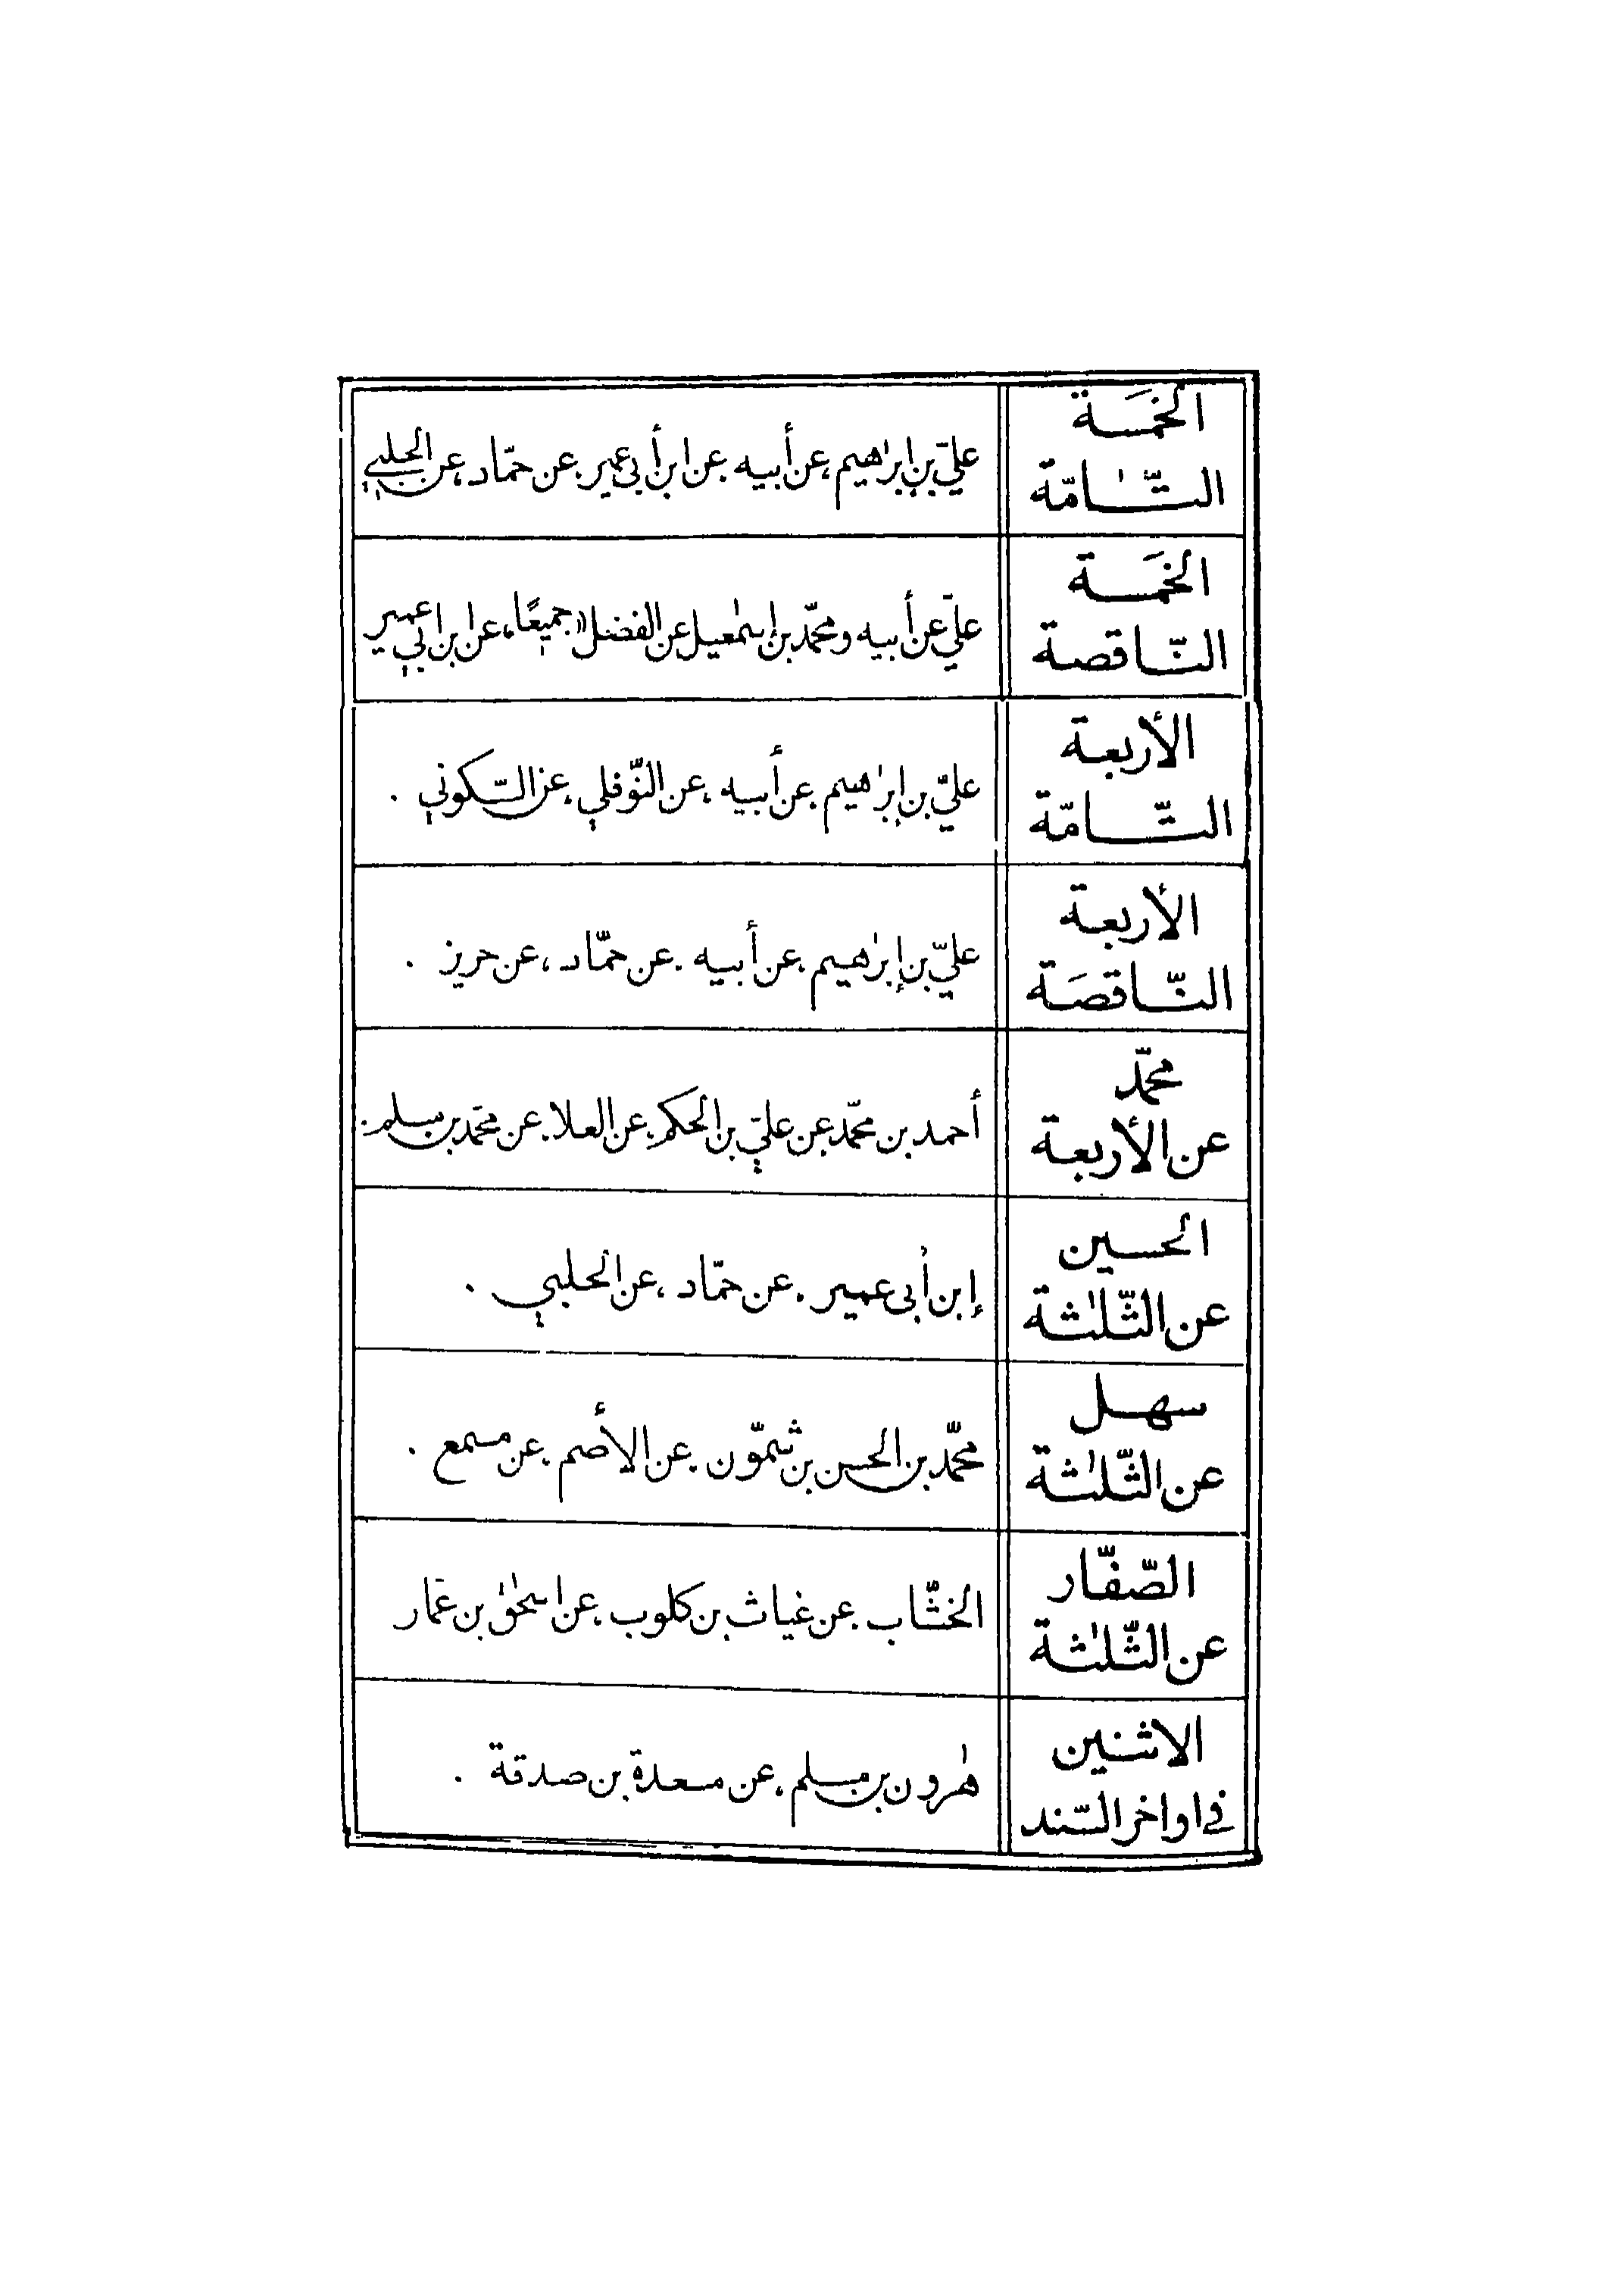 الخَمسَة
التّامّة
عليّ بن إبرٰاهيم، عن أبيه، عن ابن أبي عمير، عن حمّاد، عن الحلبي
الخمَسة
النّاقصة
عليّ عن أبيه ومحمّد بن إسمٰعيل عن الفضل «جميعًا»، عن ابن ابي عمير
الأربعة
التّامّة
عليّ بن إبرٰاهيم، عن أبيه، عن النّوفلي، عن السّكوني .
الأربعة
النّاقصَة
عليّ بن إبرٰاهيم، عن أبيه، عن حمّاد، عن حريز .
محمّد
عن الأربعة
أحمد بن محمّد، عن عليّ بن الحكم، عن العلا، عن محمّد بن مسلم.
الحسين
عن الثّلٰثة
إبن أبي عمير، عن حمّاد، عن الحلبي .
سهل
عن الثّلٰثة
محمّد بن الحسن بن شمّون، عن الأصم، عن مسمع .
الصّفّار
عن الثّلٰثة
الخشّاب، عن غياث بن كلوب، عن اسحٰق بن عمّار
الاثنين
في اواخر السّند
هٰرون بن مسلم، عن مسعدة بن صدقة .